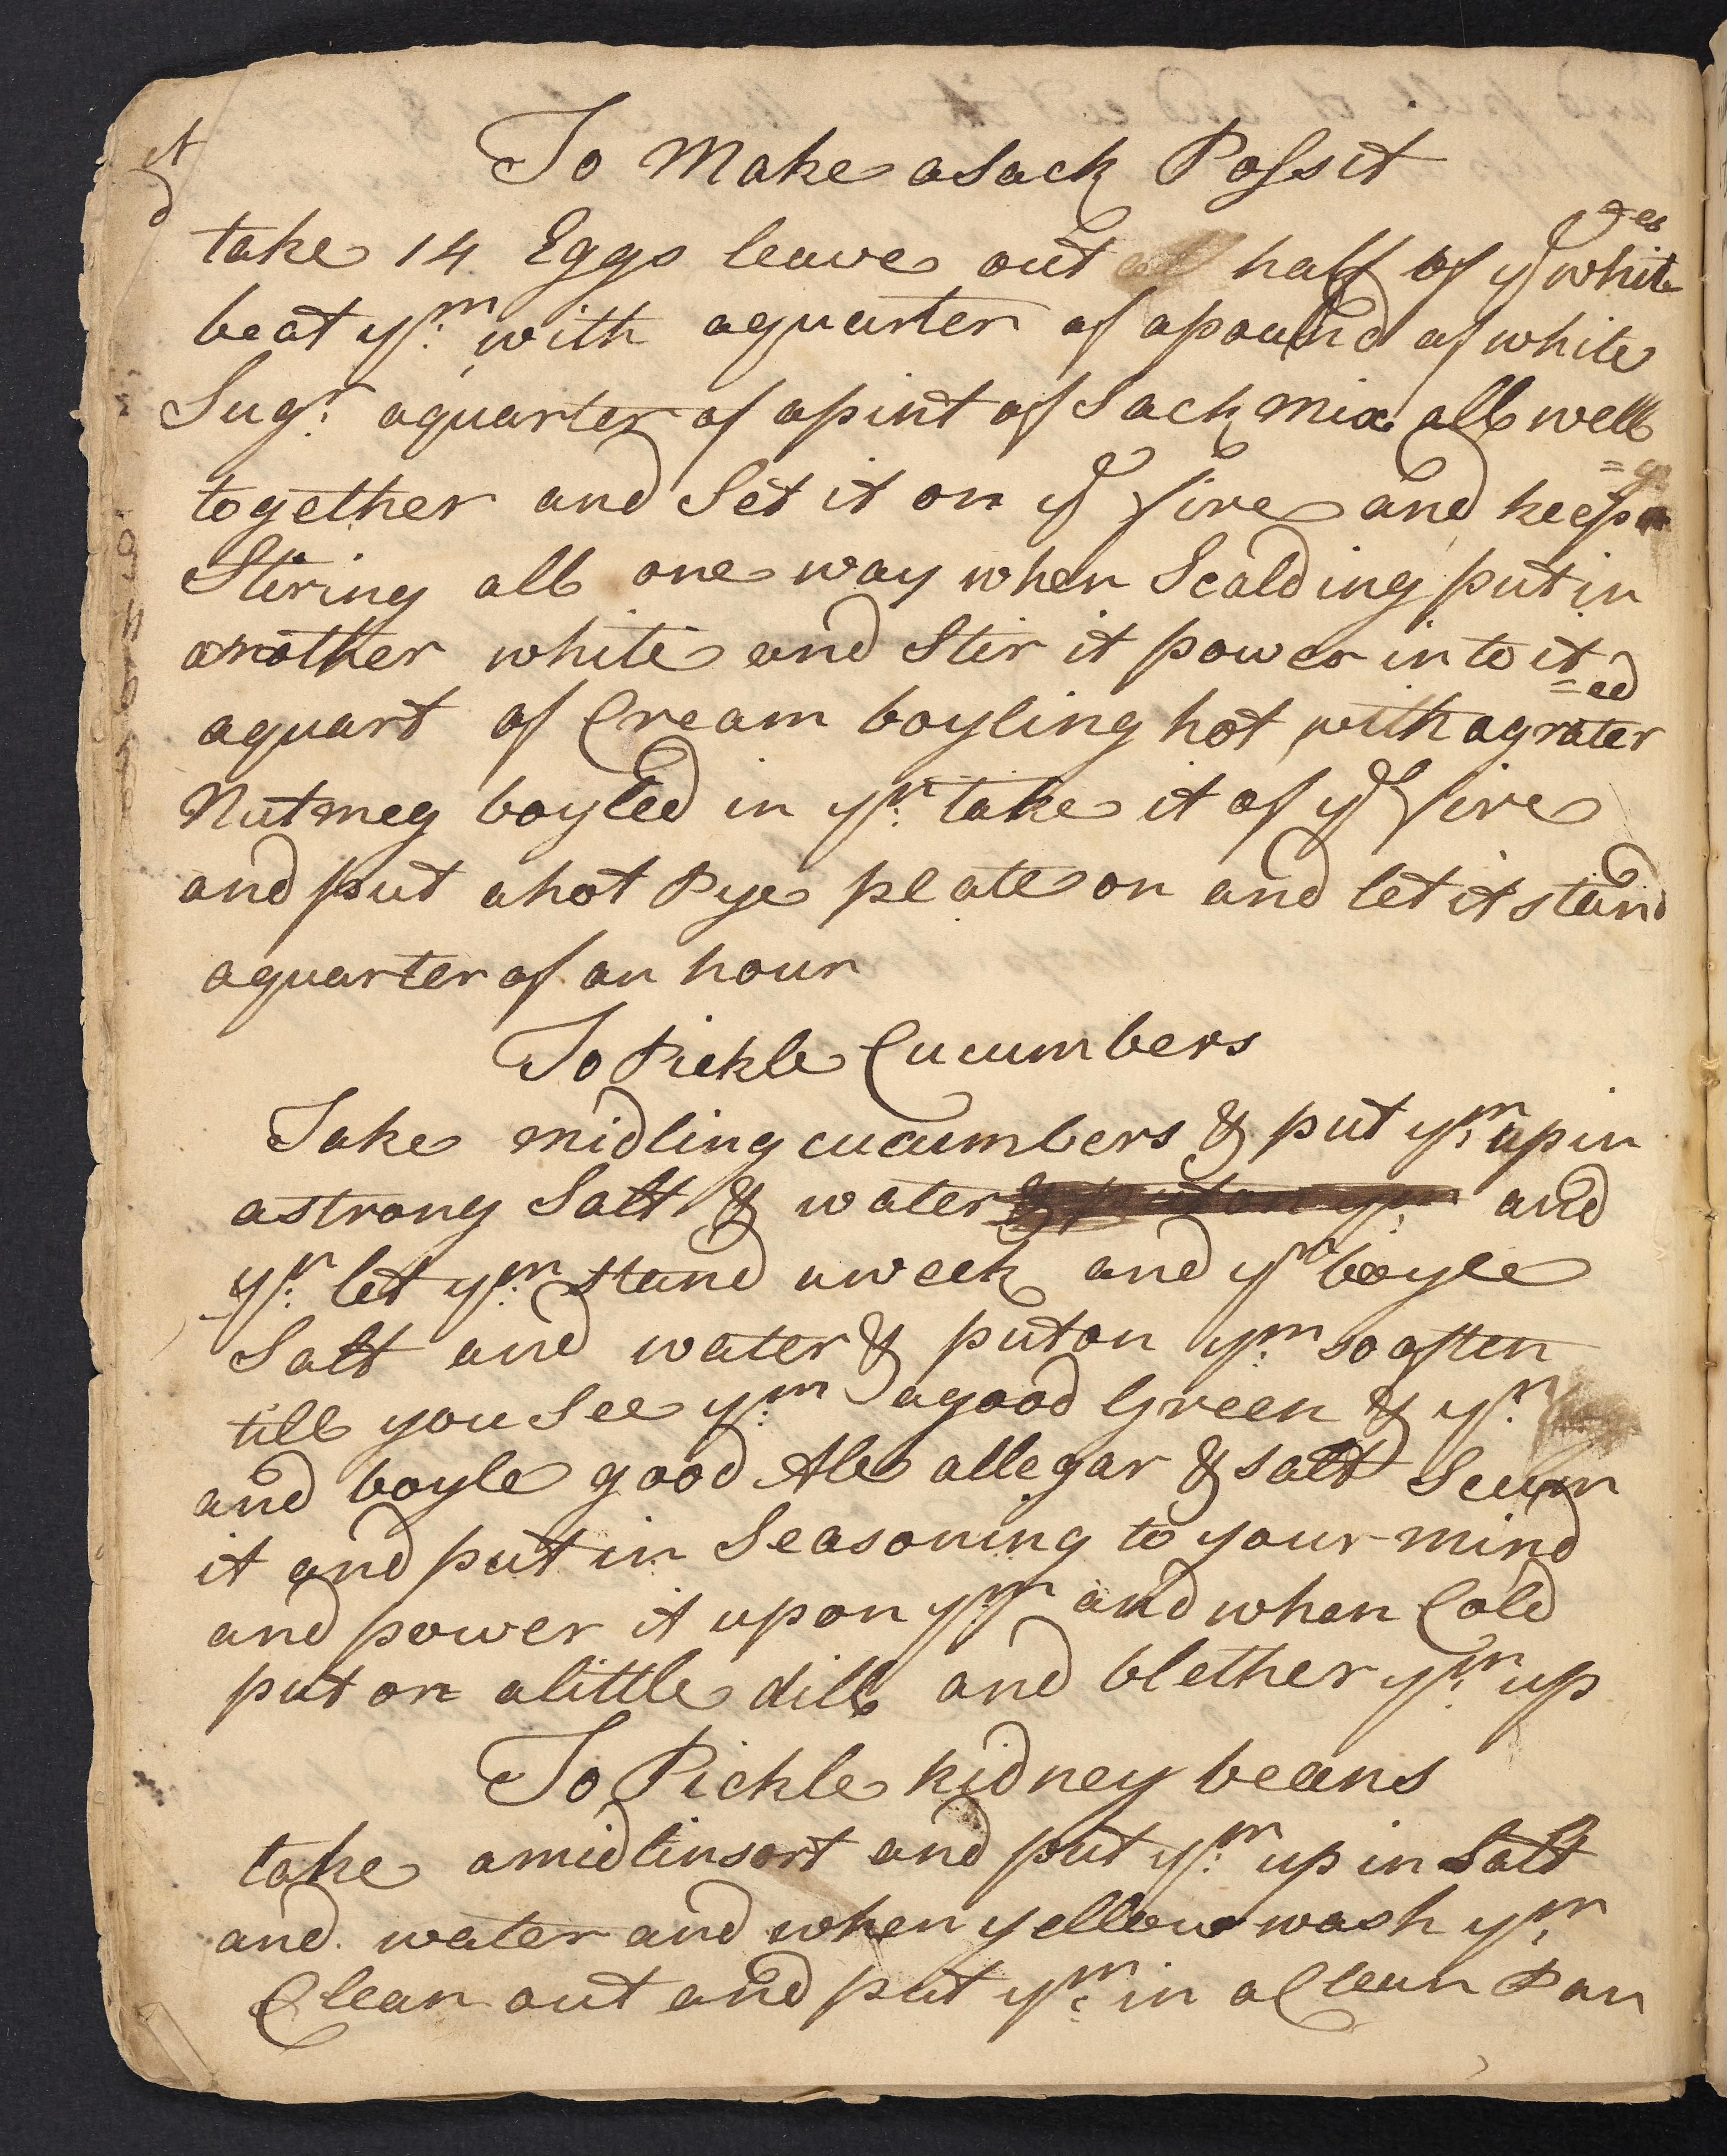 To Make a Sack Possit
take 14 Eggs leave out half of ye whit=es
beat ym: with a quarter of a pound of white
Sugr: a quarter of a pint of Sack mix all well
together and Set it on ye fire and keep
Stiring all one way when Scalding put in
another white and Stir it power in to it
a quart of Cream boyling hot with a grater=ed
Nutmeg boyled in yn: take it of ye fire
and put a hot Pye plate on and let it stand
a quarter of an hour
To Pickle Cucumbers
Take midling cucumbers & put ym: up in
a strong Salt & water & put on ym and
yn: let ym: stand a week and yn boyle
Salt and water & put on ym: so often
till you See ym: a good Green & yn:
and boyle good Ale allegar & salt Scum
it and put in Seasoning to your mind
and power it upon ym and when Cold
put on a little dill and blether ym: up
To Pickle kidney beans
take a midlin sort and put ym: up in Salt
and water and when yellow wash ym:
Clean out and put ym: in a Clean Pan